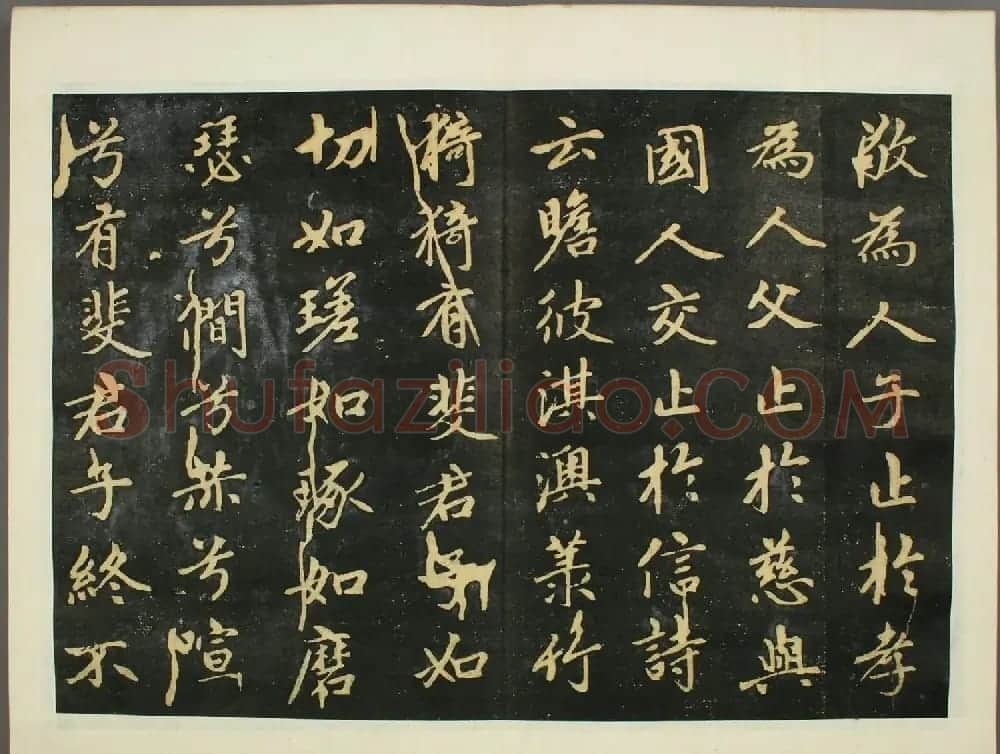 敬為人子止於孝
為人父止於慈與
國人交止於信詩
云瞻彼淇澳菉竹
猗猗有斐君子如
切如瑳如琢如磨
瑟兮僩兮赫兮喧
兮有斐君子終不
Shufaziliao.COM